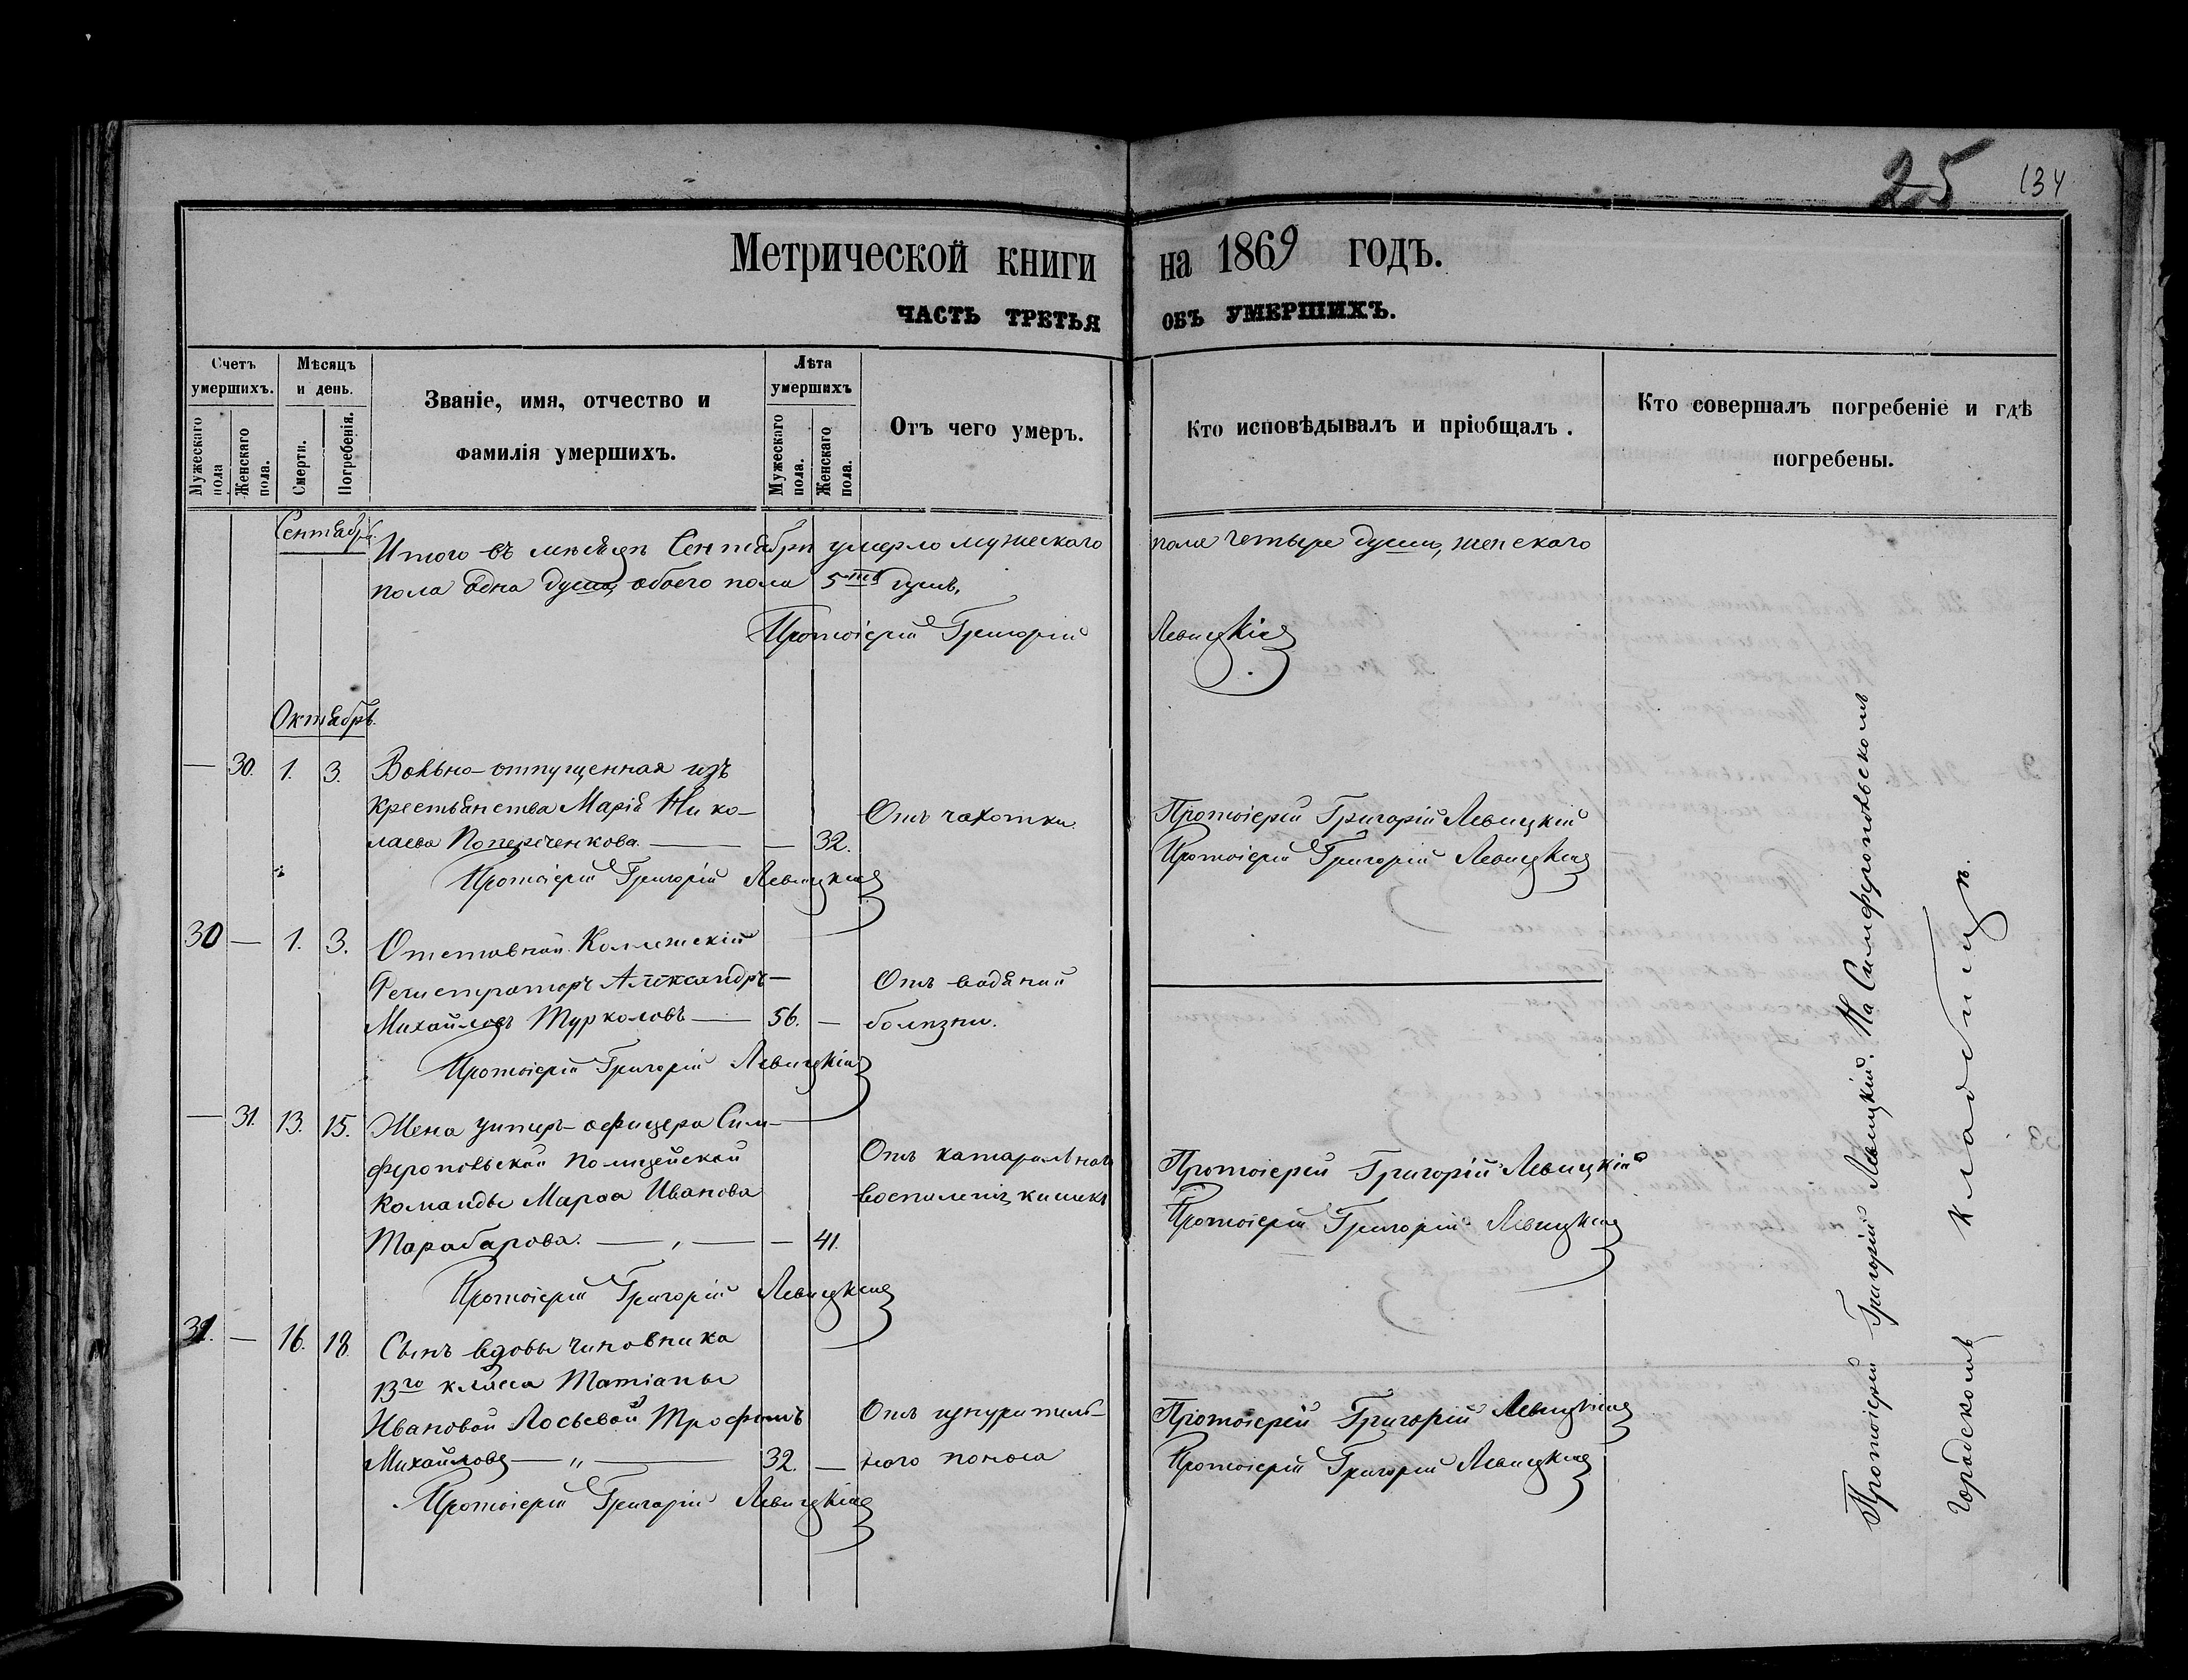 25 134
Метрической книги на 1869 годъ.
ЧАСТЬ ТРЕТЬЯ ОБЪ УМЕРШИХЪ.
Счетъ умершихъ.
Мужескаго пола
Женскаго пола.
Мѣсяцъ и день.
Смерти.
Погребенія.
Званіе, имя, отчество и фамилія умершихъ.
Лѣта умершихъ
Мужескаго пола.
Женскаго пола.
Отъ чего умеръ.
Кто исповѣдывалъ и пріобщалъ.
Кто совершалъ погребеніе и гдѣ погребены.
Сентябрь.
Итого въ мѣсяцѣ Сентябрѣ умерло мужескаго пола четыре души, женскаго
пола одна душа, обоего пола 5ть душъ.
Протоіерей Григорій Левицкій
Октябрь.
— 30. 1. 3. Вольно-отпущенная изъ
крестьянства Марія Нико-
лаева Поперѣченкова. — — 32.
Отъ чахотки.
Протоіерей Григорій Левицкій
Протоіерей Григорій Левицкій
Протоіерей Григорій Левицкій
30 — 1. 3. Отставной Коллежскій
Регистраторъ Александръ —
Михайловъ Турколовъ — 56. —
Отъ водяной
болѣзни.
Протоіерей Григорій Левицкій
— 31. 13. 15. Жена унтеръ-офицера Сим-
феропольской полицейской
команды Марѳа Иванова
Тарабарова. — „ — — 41.
Отъ катаральнаго
воспаленія кишекъ
Протоіерей Григорій Левицкій
Протоіерей Григорій Левицкій
Протоіерей Григорій Левицкій
31. — 16. 18. Сынъ вдовы чиновника
13го класса Татіаны
Ивановой Лосьевой Трофимъ
Михайловъ — „ — 32. —
Отъ изнуритель-
наго поноса
Протоіерей Григорій Левицкій
Протоіерей Григорій Левицкій
Протоіерей Григорій Левицкій
Протоіерей Григорій Левицкій. На Симферопольскомъ
городскомъ кладбищѣ.